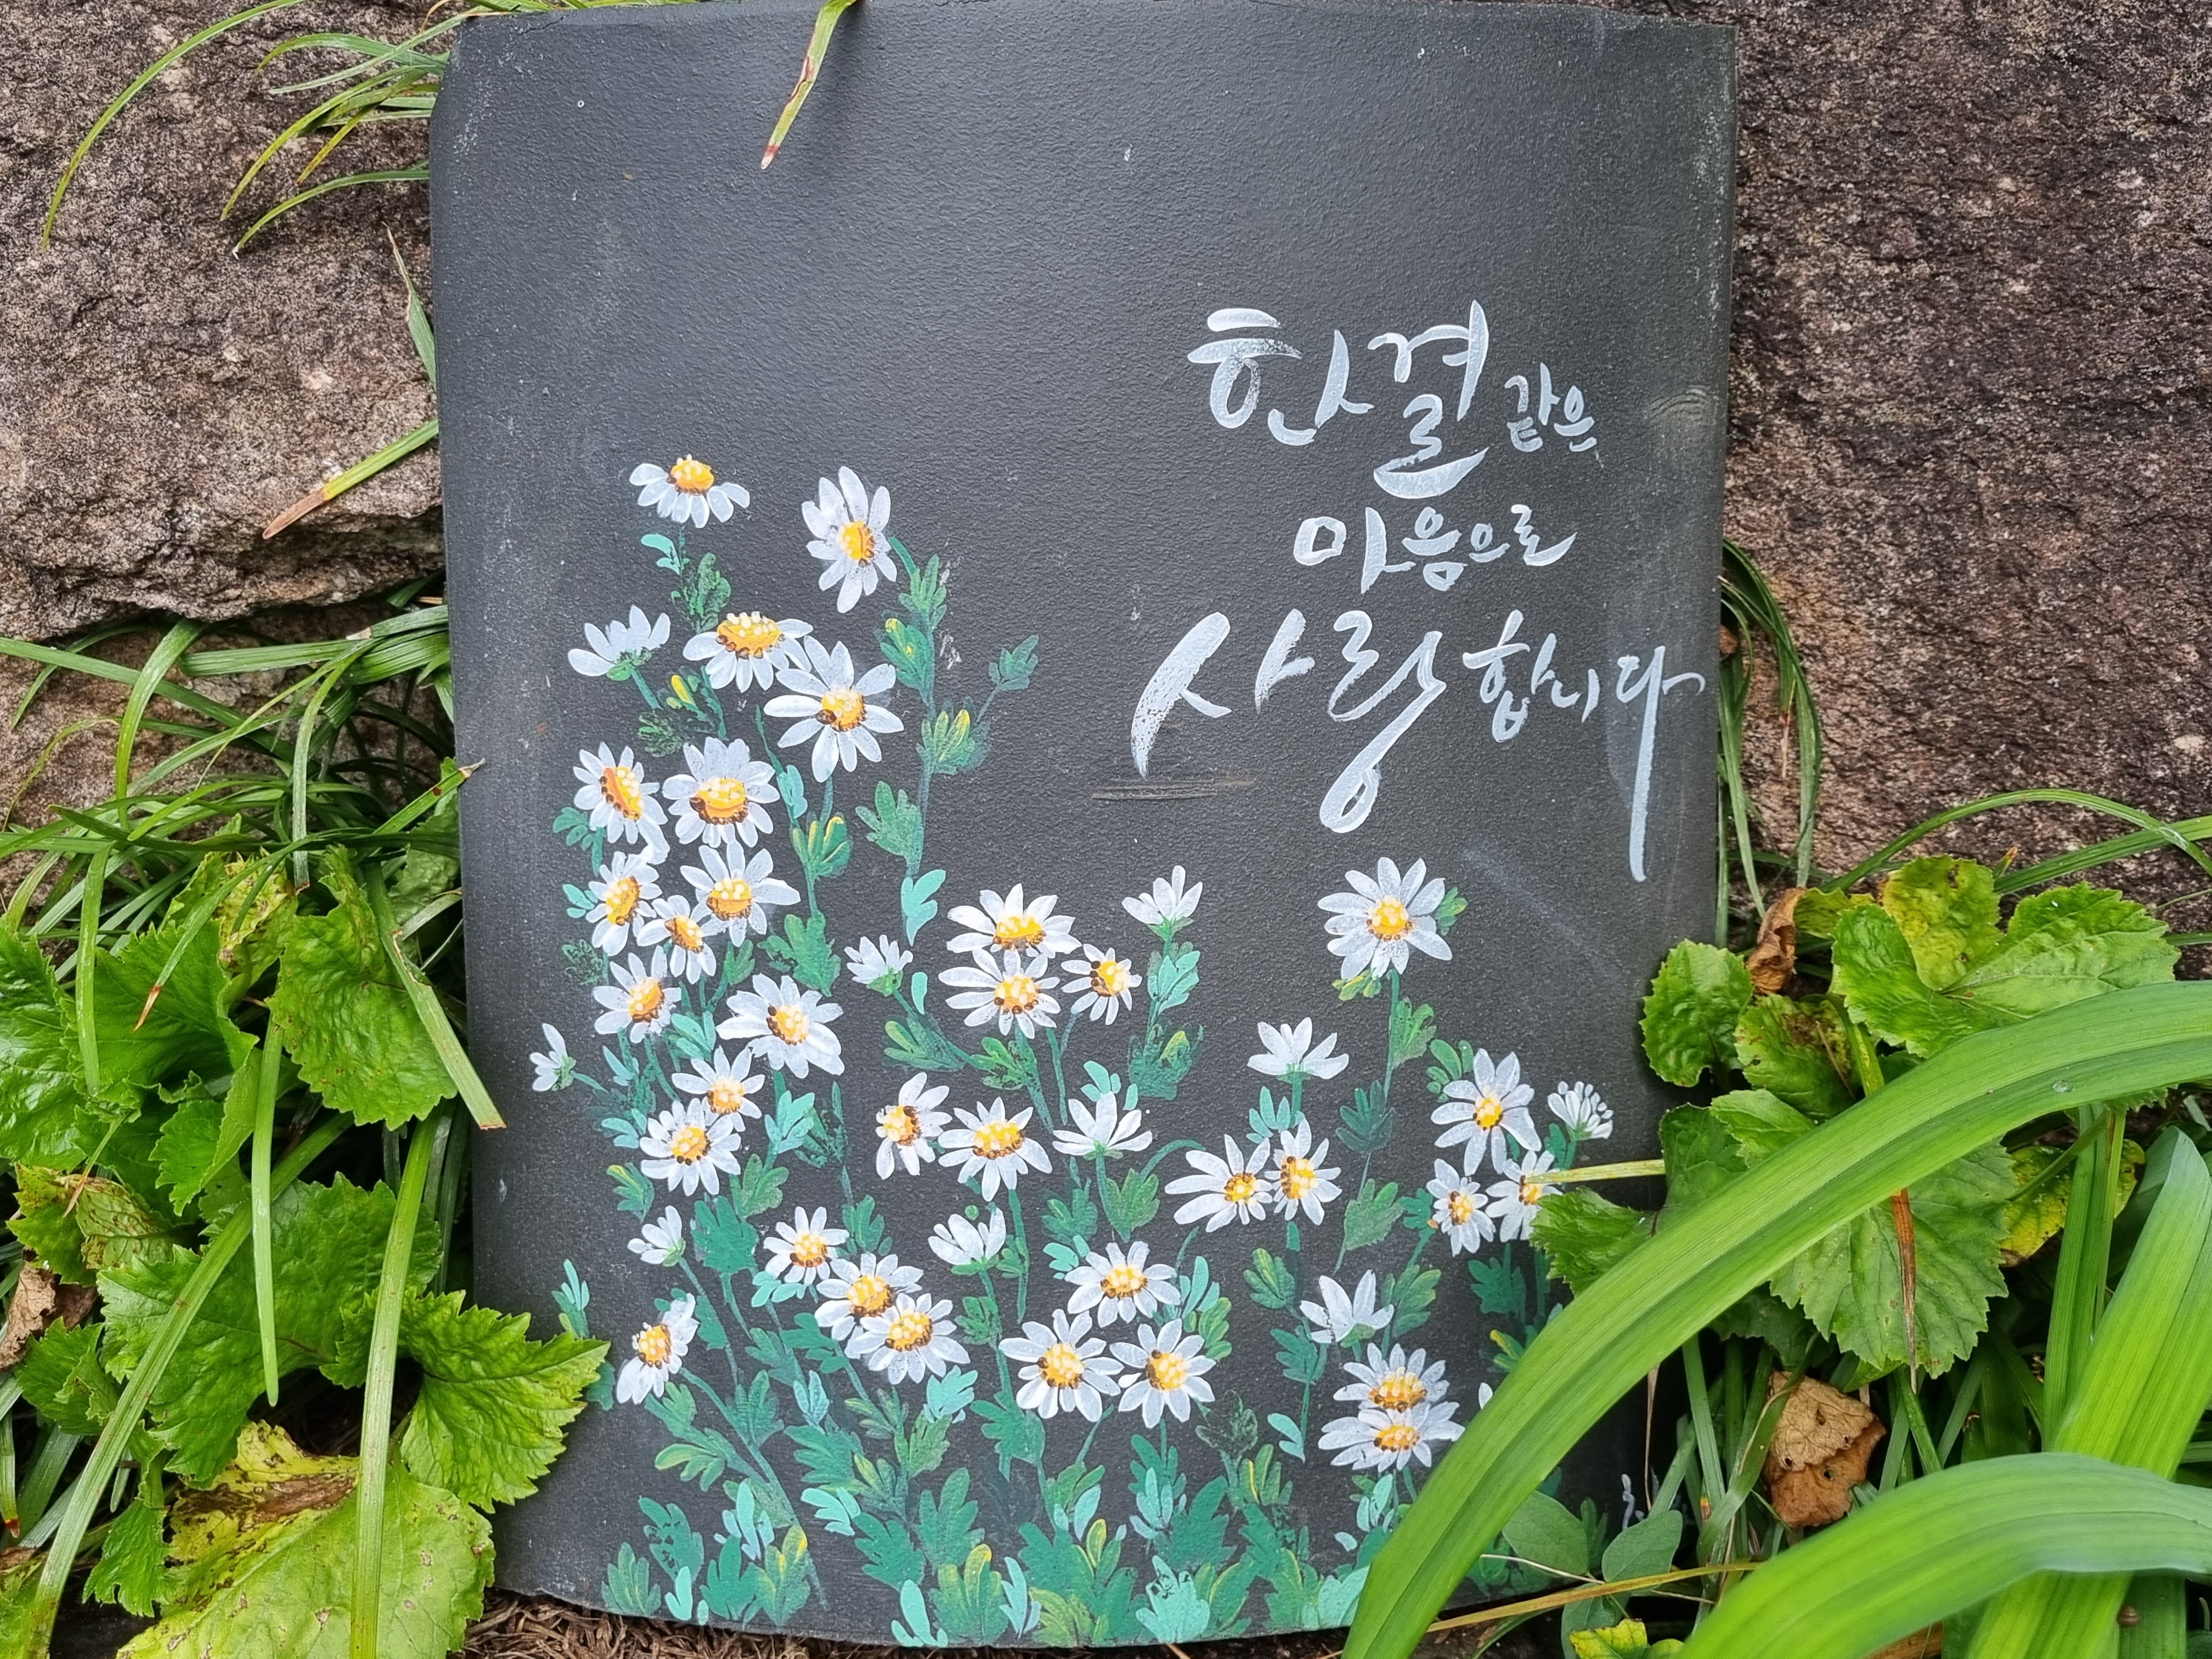 한결같은
마음으로
사랑합니다